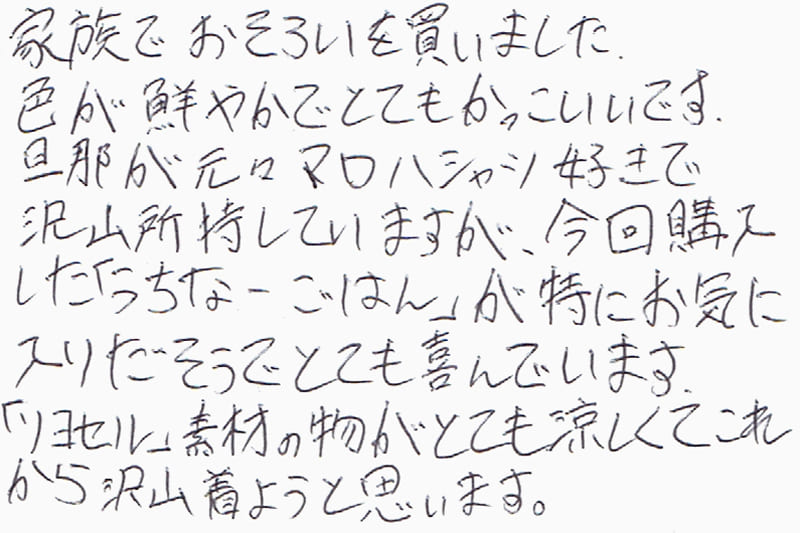 家族でおそろいを買いました.
色が鮮やかでとてもかっこいいです.
旦那が元々マロハシャツ好きで
沢山所持していますが、今回購入
した「うちなーごはん」が特にお気に
入りだそうでとても喜んでいます.
「リヨセル」素材の物がとても涼しくてこれ
から沢山着ようと思います。